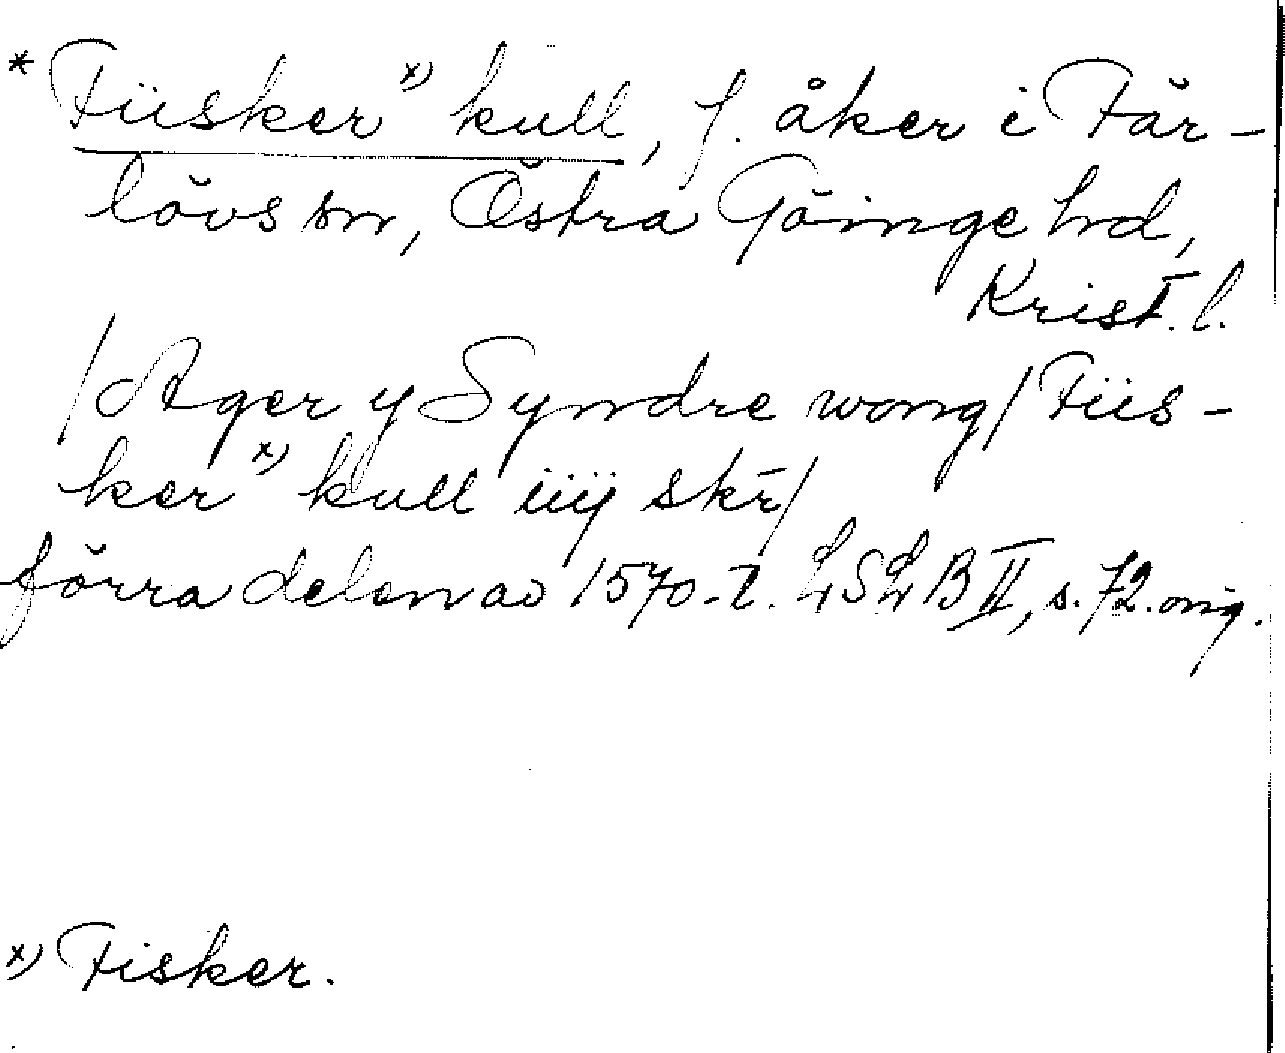 * Fiisker x) kull, f. åker i Fär-
lövs sn, Östra Göinge hd,
Krist. l.
/Ager y Syndre wong/ Fiis-
ker x) kull iiij skr̄/
förra delen av 1570-t. LSLB II, s. 72. orig.
x) Fisker.